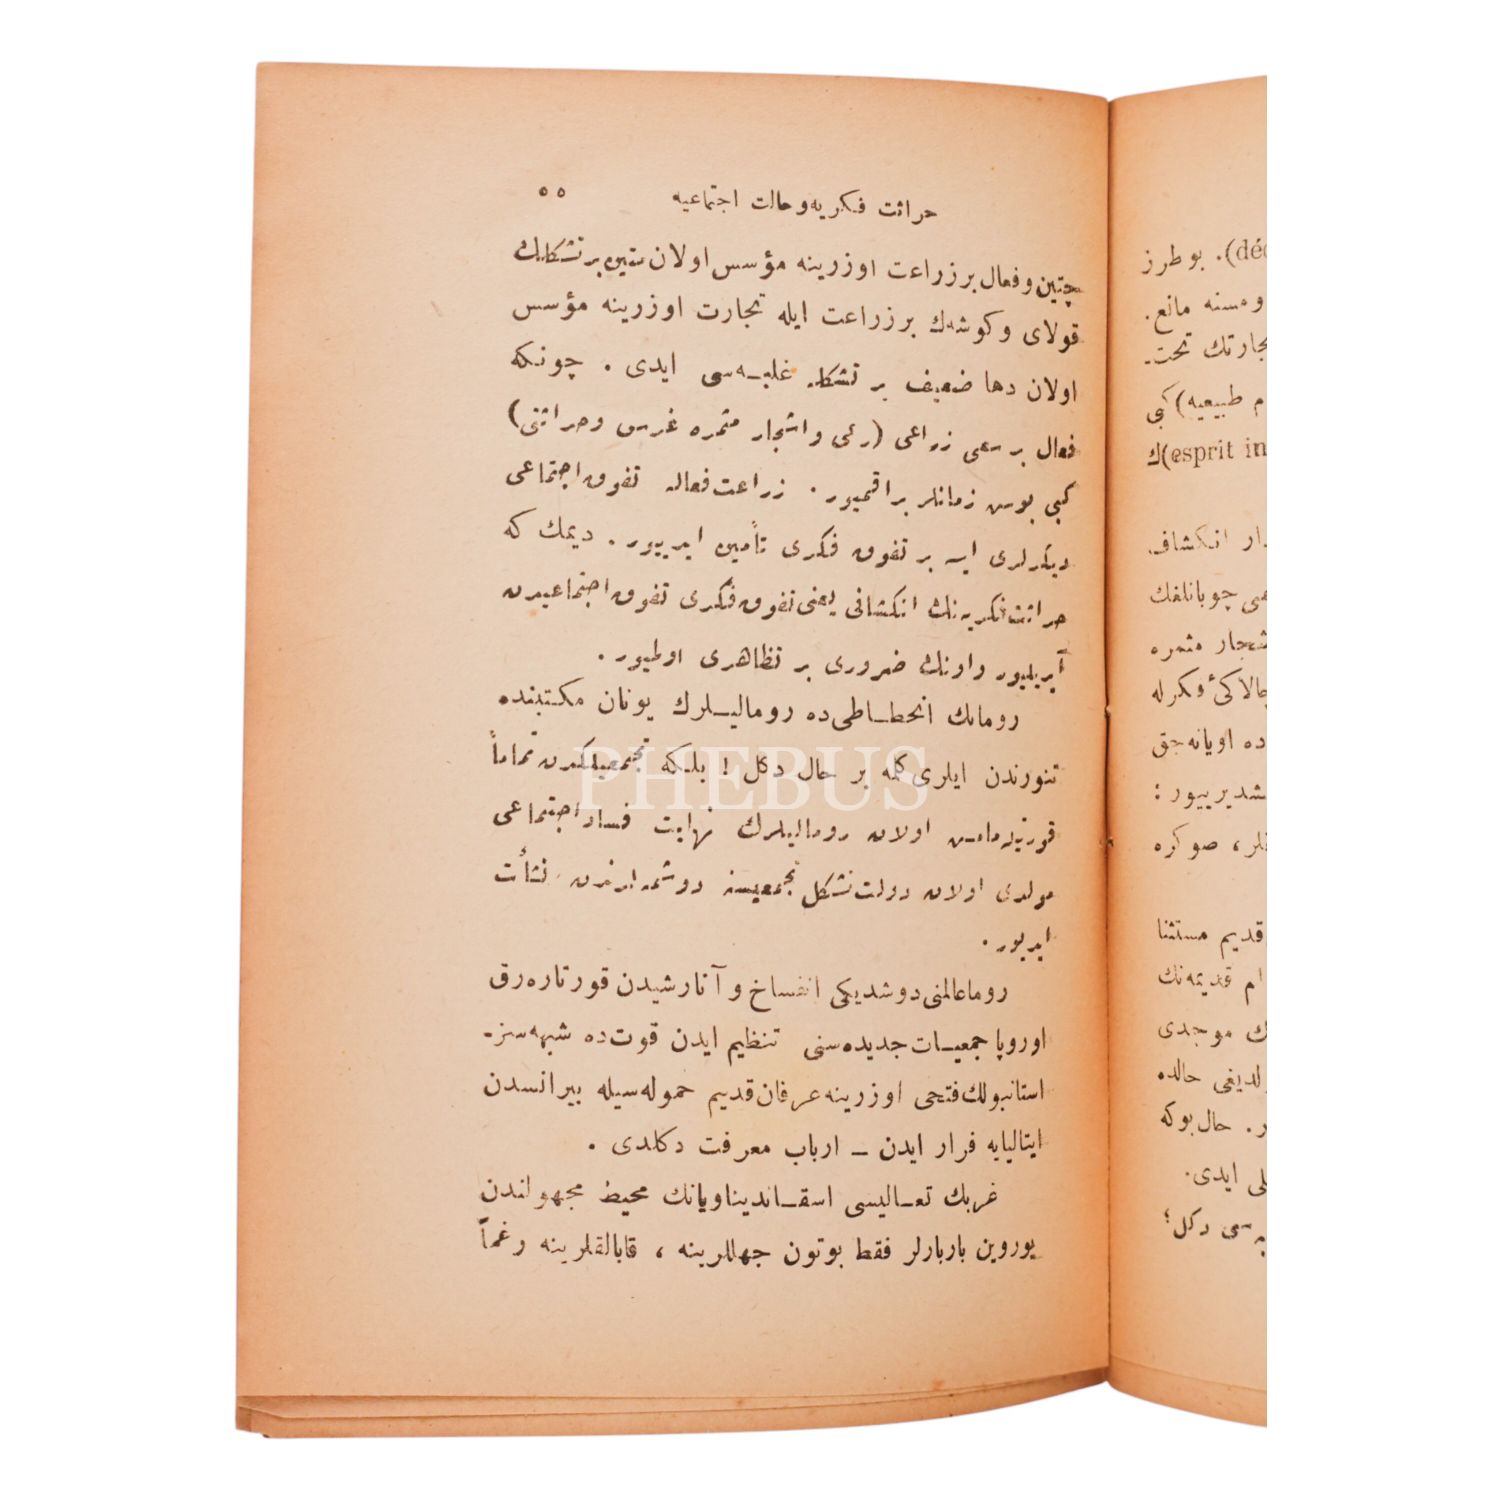 حراثت فكريه و حالت اجتماعيه
٥٥
چتين و فعال بر زراعت اوزرينه مؤسس اولان متين بر تشكلك
قولاى و كوشه ك بر زراعت ايله تجارت اوزرينه مؤسس
اولان دها ضعيف بر تشكله غلبه سى ايدى . چونكه
فعال بر سعى زراعى (رعى و اشجار مثمره غرس و حراثتى)
كبى بوس زمانلر براقميور . زراعت فعاله تفوق اجتماعى
ديكرلرى ايسه بر تفوق فكرى تأمين ايدييور . ديمك كه
حراثت فكريه نك انكشافى يعنى تفوق فكرى تفوق اجتماعيدن
آيريلييور و اونك ضرورى بر تظاهرى اولميور .
رومانك انحطاطى ده روماليلرك يونان مكتبنده
تنورندن ايلرى كلمه بر حال دكل ! بلكه تجمعيلكدن تماماً
قورتيله مامش اولان روماليلرك نهايت فساد اجتماعى
مولدى اولان دولت تشكل تجمعيسنه دوشمه لرندن نشأت
ايدييور .
روما عالمنى دوشديكى انفساخ و آنارشيدن قورتاره رق
اوروپا جمعيات جديده سنى تنظيم ايدن قوت ده شبهه سز ـ
استانبولك فتحى اوزرينه عرفان قديم حموله سيله بيرانسدن
ايتاليايه فرار ايدن ـ ارباب معرفت دكلدى .
غربك تعاليسى اسقانديناويانك محيط مجهولندن
يوروين باربارلر فقط بوتون جهللرينه ، قابالقلرينه رغماً
. بو طرز
ومسنه مانع .
تجارتك تحت ـ
طبيعيه) كبى
(esprit in
انكشاف
چوبانلغك
مثمره
فكرله
ده اويانه جق
صوكره
قديم مستثنا
قديمه نك
موجدى
حالده
. حال بوكه
ايدى .
سى دكل ؛